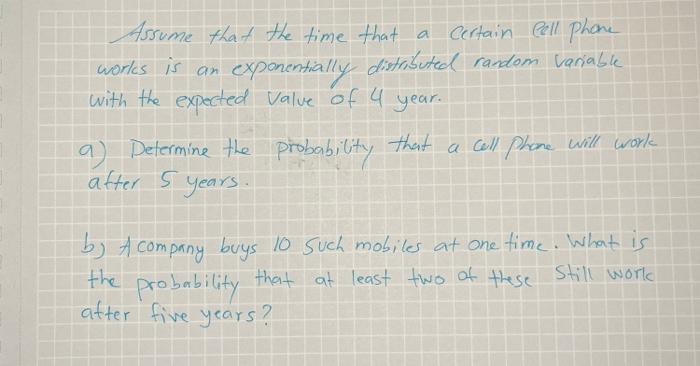 Assume that the time that a certain Cell phone
works is an exponentially distributed random variable
with the expected value of 4 year.
a) Determine the probability that a cell phone will work
after 5 years.
b) A company buys 10 such mobiles at one time. What is
the probability that at least two of these still work
after five years?